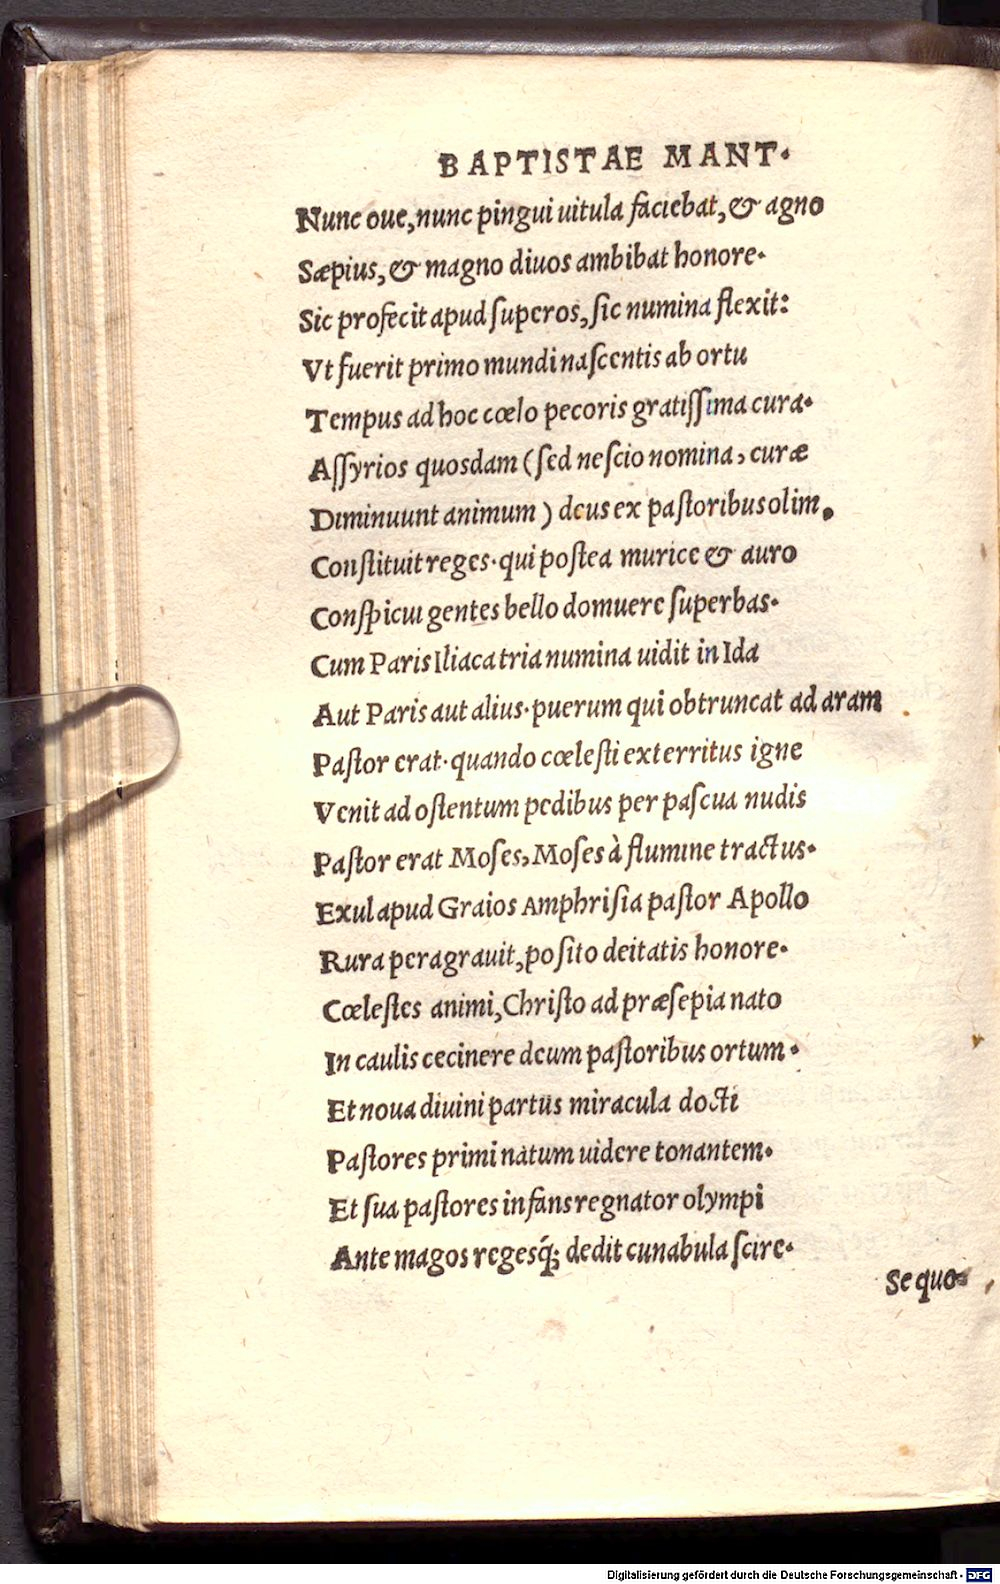 BAPTISTAE MANT.
Nunc oue, nunc pingui uitula faciebat, & agno
Sæpius, & magno diuos ambibat honore.
Sic profecit apud ſuperos, ſic numina flexit:
Vt fuerit primo mundi naſcentis ab ortu
Tempus ad hoc cœlo pecoris gratiſſima cura.
Aſſyrios quosdam (ſed neſcio nomina, curæ
Diminuunt animum) deus ex paſtoribus olim.
Conſtituit reges. qui poſtea murice & auro
Conſpicui gentes bello domuere ſuperbas.
Cum Paris Iliaca tria numina uidit in Ida
Aut Paris aut alius. puerum qui obtruncat ad aram
Paſtor erat. quando cœleſti exterritus igne
Venit ad oſtentum pedibus per paſcua nudis
Paſtor erat Moſes, Moſes à flumine tractus.
Exul apud Graios Amphriſia paſtor Apollo
Rura peragrauit, poſito deitatis honore.
Cœleſtes animi, Chriſto ad præſepia nato
In caulis cecinere deum paſtoribus ortum.
Et noua diuini partus miracula docti
Paſtores primi natum uidere tonantem.
Et ſua paſtores infans regnator olympi
Ante magos regesq́; dedit cunabula ſcire.
Se quo-
Digitalisierung gefördert durch die Deutsche Forschungsgemeinschaft - DFG